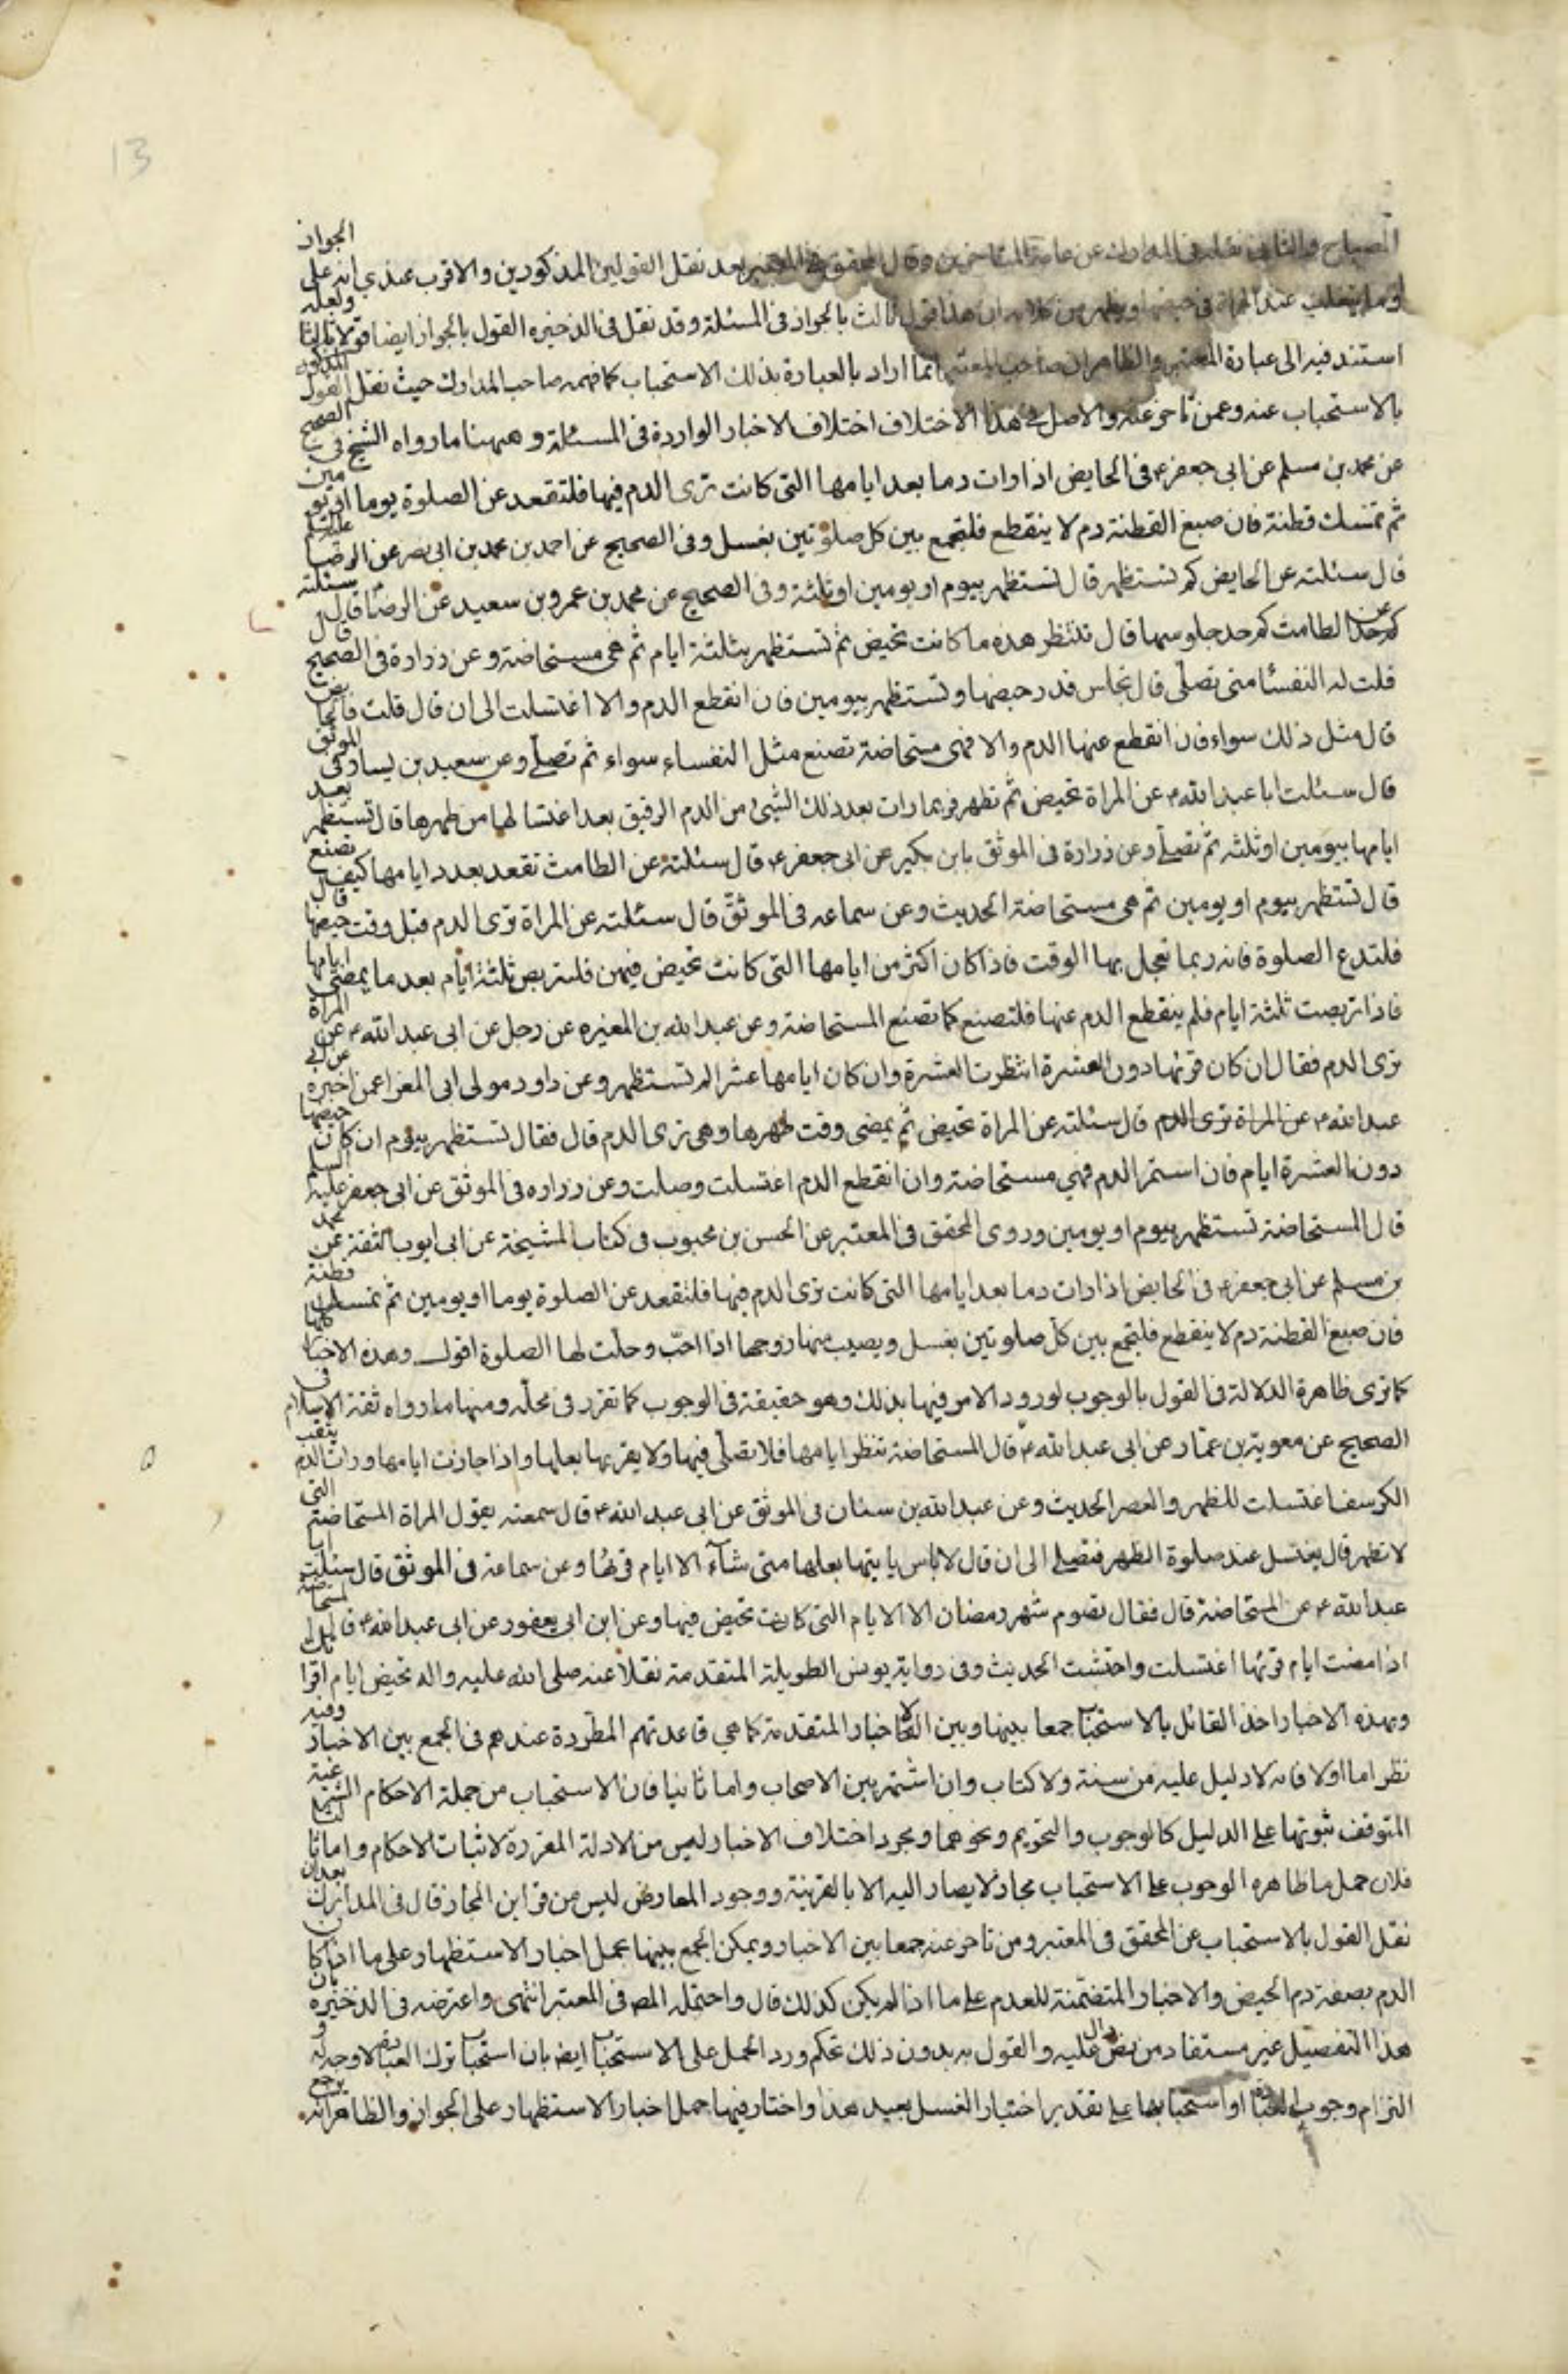 المصباح والثاني نقله في المدارك عن عامة المتاخرين وقال المحقق في المعتبر بعد نقل القولين المذكورين والاقرب عندي انه على الجواز
او ما يغلب عند المراة في حيضها ويظهر من كلامه ان هذا قول ثالث بالجواز في المسئلة وقد نقل في الذخيره القول بالجواز ايضا قولا ثالثا ولعله
استند فيه الى عبارة المعتبر والظاهر ان صاحب المعتبر انما اراد بالعبارة بذلك الاستحباب كما فهمه صاحب المدارك حيث نقل القول المذكور
بالاستحباب عنه وعمن تاخر عنه والاصل في هذا الاختلاف اختلاف الاخبار الواردة في المسئلة وههنا ما رواه الشيخ في الصحيح
عن محمد بن مسلم عن ابى جعفر ع في الحايض اذا رات دما بعد ايامها التي كانت ترى الدم فيها فلتقعد عن الصلوة يوما او يومين
ثم تمسك قطنة فان صبغ القطنة دم لا ينقطع فلتجمع بين كل صلوتين بغسل وفي الصحيح عن احمد بن محمد بن ابى نصر عن الرضا عليه السلم
قال سئلته عن الحايض كم تستظهر قال تستظهر بيوم او يومين او ثلثة وفي الصحيح عن محمد بن عمرو بن سعيد عن الرضا ع قال سئلته
عن الطامث كم حد جلوسها قال تنتظر هذه ما كانت تحيض ثم تستظهر بثلثة ايام ثم هي مستحاضة وعن زرارة في الصحيح قال
قلت له النفسئا متى تصلي قال تجلس قدر حيضها وتستظهر بيومين فان انقطع الدم والا اغتسلت الى ان قال قلت فالحايض
قال مثل ذلك سواء فان انقطع عنها الدم والا فهي مستحاضة تصنع مثل النفساء سواء ثم تصلي وعن سعيد بن يسار في الموثق
قال سئلت ابا عبد الله ع عن المراة تحيض ثم تطهر فربما رات بعد ذلك الشئ من الدم الرقيق بعد اغتسالها من طهرها قال تستظهر بعد
ايامها بيومين او ثلثه ثم تصلي وعن زرارة في الموثق بابن بكير عن ابى جعفر ع قال سئلته عن الطامث تقعد بعدد ايامها كيف تصنع
قال تستظهر بيوم او يومين ثم هي مستحاضة الحديث وعن سماعه في الموثق قال سئلته عن المراة ترى الدم قبل وقت حيضها قال
فلتدع الصلوة فانه ربما تعجل بها الوقت فاذا كان اكثر من ايامها التي كانت تحيض فيهن فلتربص ثلثة ايام بعد ما يمضي ايامها
فاذا تربصت ثلثة ايام فلم ينقطع الدم عنها فلتصنع كما تصنع المستحاضة وعن عبد الله بن المغيره عن رجل عن ابى عبد الله ع عن المراة
ترى الدم فقال ان كان قرئها دون العشرة انتظرت العشرة وان كان ايامها عشرا لم تستظهر وعن داود مولى ابى المغرا عمن اخبره عن ابي
عبد الله ع عن المراة ترى الدم قال سئلته عن المراة تحيض ثم يمضي وقت طهرها وهي ترى الدم قال فقال تستظهر بيوم ان كان حيضها
دون العشرة ايام فان استمر الدم فهي مستحاضة وان انقطع الدم اغتسلت وصلت وعن زراره في الموثق عن ابى جعفر عليه السلم
قال المستحاضة تستظهر بيوم او يومين وروى المحقق في المعتبر عن الحسن بن محبوب في كتاب المشيخة عن ابى ايوب الثقة عن محمد
بن مسلم عن ابى جعفر ع في الحايض اذا رات دما بعد ايامها التي كانت ترى الدم فيها فلتقعد عن الصلوة يوما او يومين ثم تمسك قطنة
فان صبغ القطنة دم لا ينقطع فلتجمع بين كل صلوتين بغسل ويصيب منها زوجها اذا احب وحلت لها الصلوة اقول وهذه الاخبار كلها
كما ترى ظاهرة الدلالة في القول بالوجوب لورود الامر فيها بذلك وهو حقيقة في الوجوب كما تقرر في محله ومنها ما رواه ثقة الاسلام في
الصحيح عن معوية بن عمار عن ابى عبد الله ع قال المستحاضة تنظر ايامها فلا تصلي فيها ولا يقربها بعلها واذا جازت ايامها ورات الدم يثقب
الكرسف اغتسلت للظهر والعصر الحديث وعن عبد الله بن سنان في الموثق عن ابى عبد الله ع قال سمعته يقول المراة المستحاضة التي
لا تطهر قال يغتسل عند صلوة الظهر فتصلي الى ان قال لا باس ياتيها بعلها متى شآء الا ايام قرئها وعن سماعة في الموثق قال سئلت ابا
عبد الله ع عن المستحاضة قال فقال تصوم شهر رمضان الا الايام التي كانت تحيض فيها وعن ابن ابى يعفور عن ابى عبد الله ع قال المستحاضة
اذا مضت ايام قرئها اغتسلت واحتشت الحديث وفي رواية يونس الطويلة المتقدمة نقلا عنه صلى الله عليه واله تحيض ايام اقرائك
وبهذه الاخبار اخذ القائل بالاستحباب جمعا بينها وبين الاخبار المتقدمة كما هي قاعدتهم المطردة عندهم في الجمع بين الاخبار وفيه
نظر اما اولا فانه لا دليل عليه من سنة ولا كتاب وان اشتهر بين الاصحاب واما ثانيا فان الاستحباب من جملة الاحكام الشرعية
المتوقف ثبوتها على الدليل كالوجوب والتحريم ونحوهما ومجرد اختلاف الاخبار ليس من الادلة المقررة لاثبات الاحكام واما ثالثا
فلان حمل ما ظاهره الوجوب على الاستحباب مجاز لا يصار اليه الا بالقرينة ووجود المعارض ليس من قراين المجاز قال في المدارك بعد ان
نقل القول بالاستحباب عن المحقق في المعتبر ومن تاخر عنه جمعا بين الاخبار ويمكن الجمع بينها بحمل اخبار الاستظهار على ما اذا كان
الدم بصفة دم الحيض والاخبار المتضمنة للعدم على ما اذا لم يكن كذلك قال واحتمله المص في المعتبر انتهى واعترضه في الذخيره بان
هذا التفصيل غير مستفاد من نص دال عليه والقول به بدون ذلك تحكم ورد الحمل على الاستحباب ايضا بان استحباب ترك العبادة لا وجه له و
التزام وجوب العبادة او استحبابها على تقدير اختيار الغسل بعيد هذا واختار فيها حمل اخبار الاستظهار على الجواز والظاهر انه يرجع
13